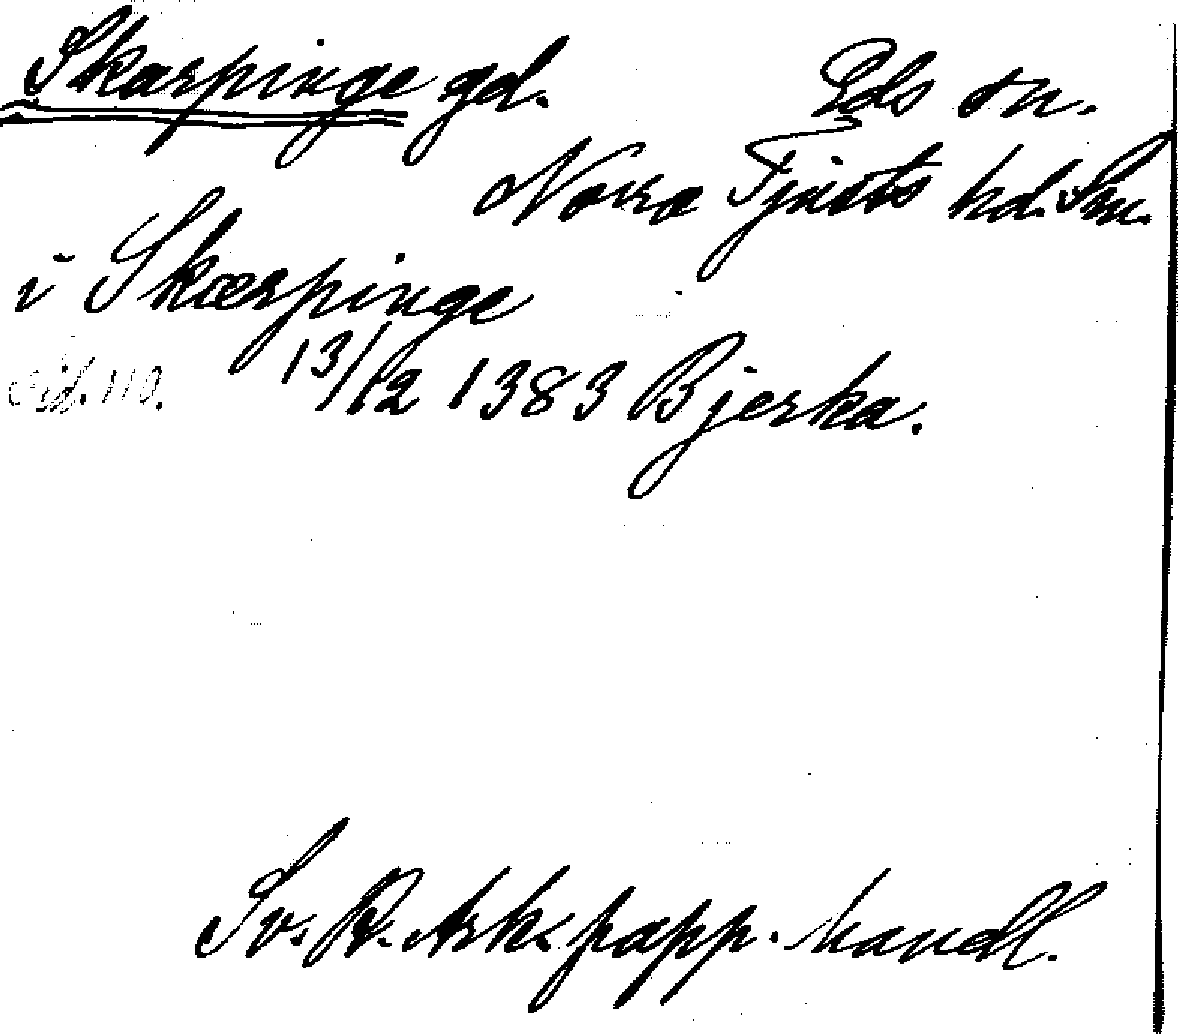 Skarpinge gd. Eds sn.
Norra Tjusts hd. Sm.
i Skærpinge
Aid. 110. 13/12 1383 Bjerka.
Sv. R. Ark. papp. handl.